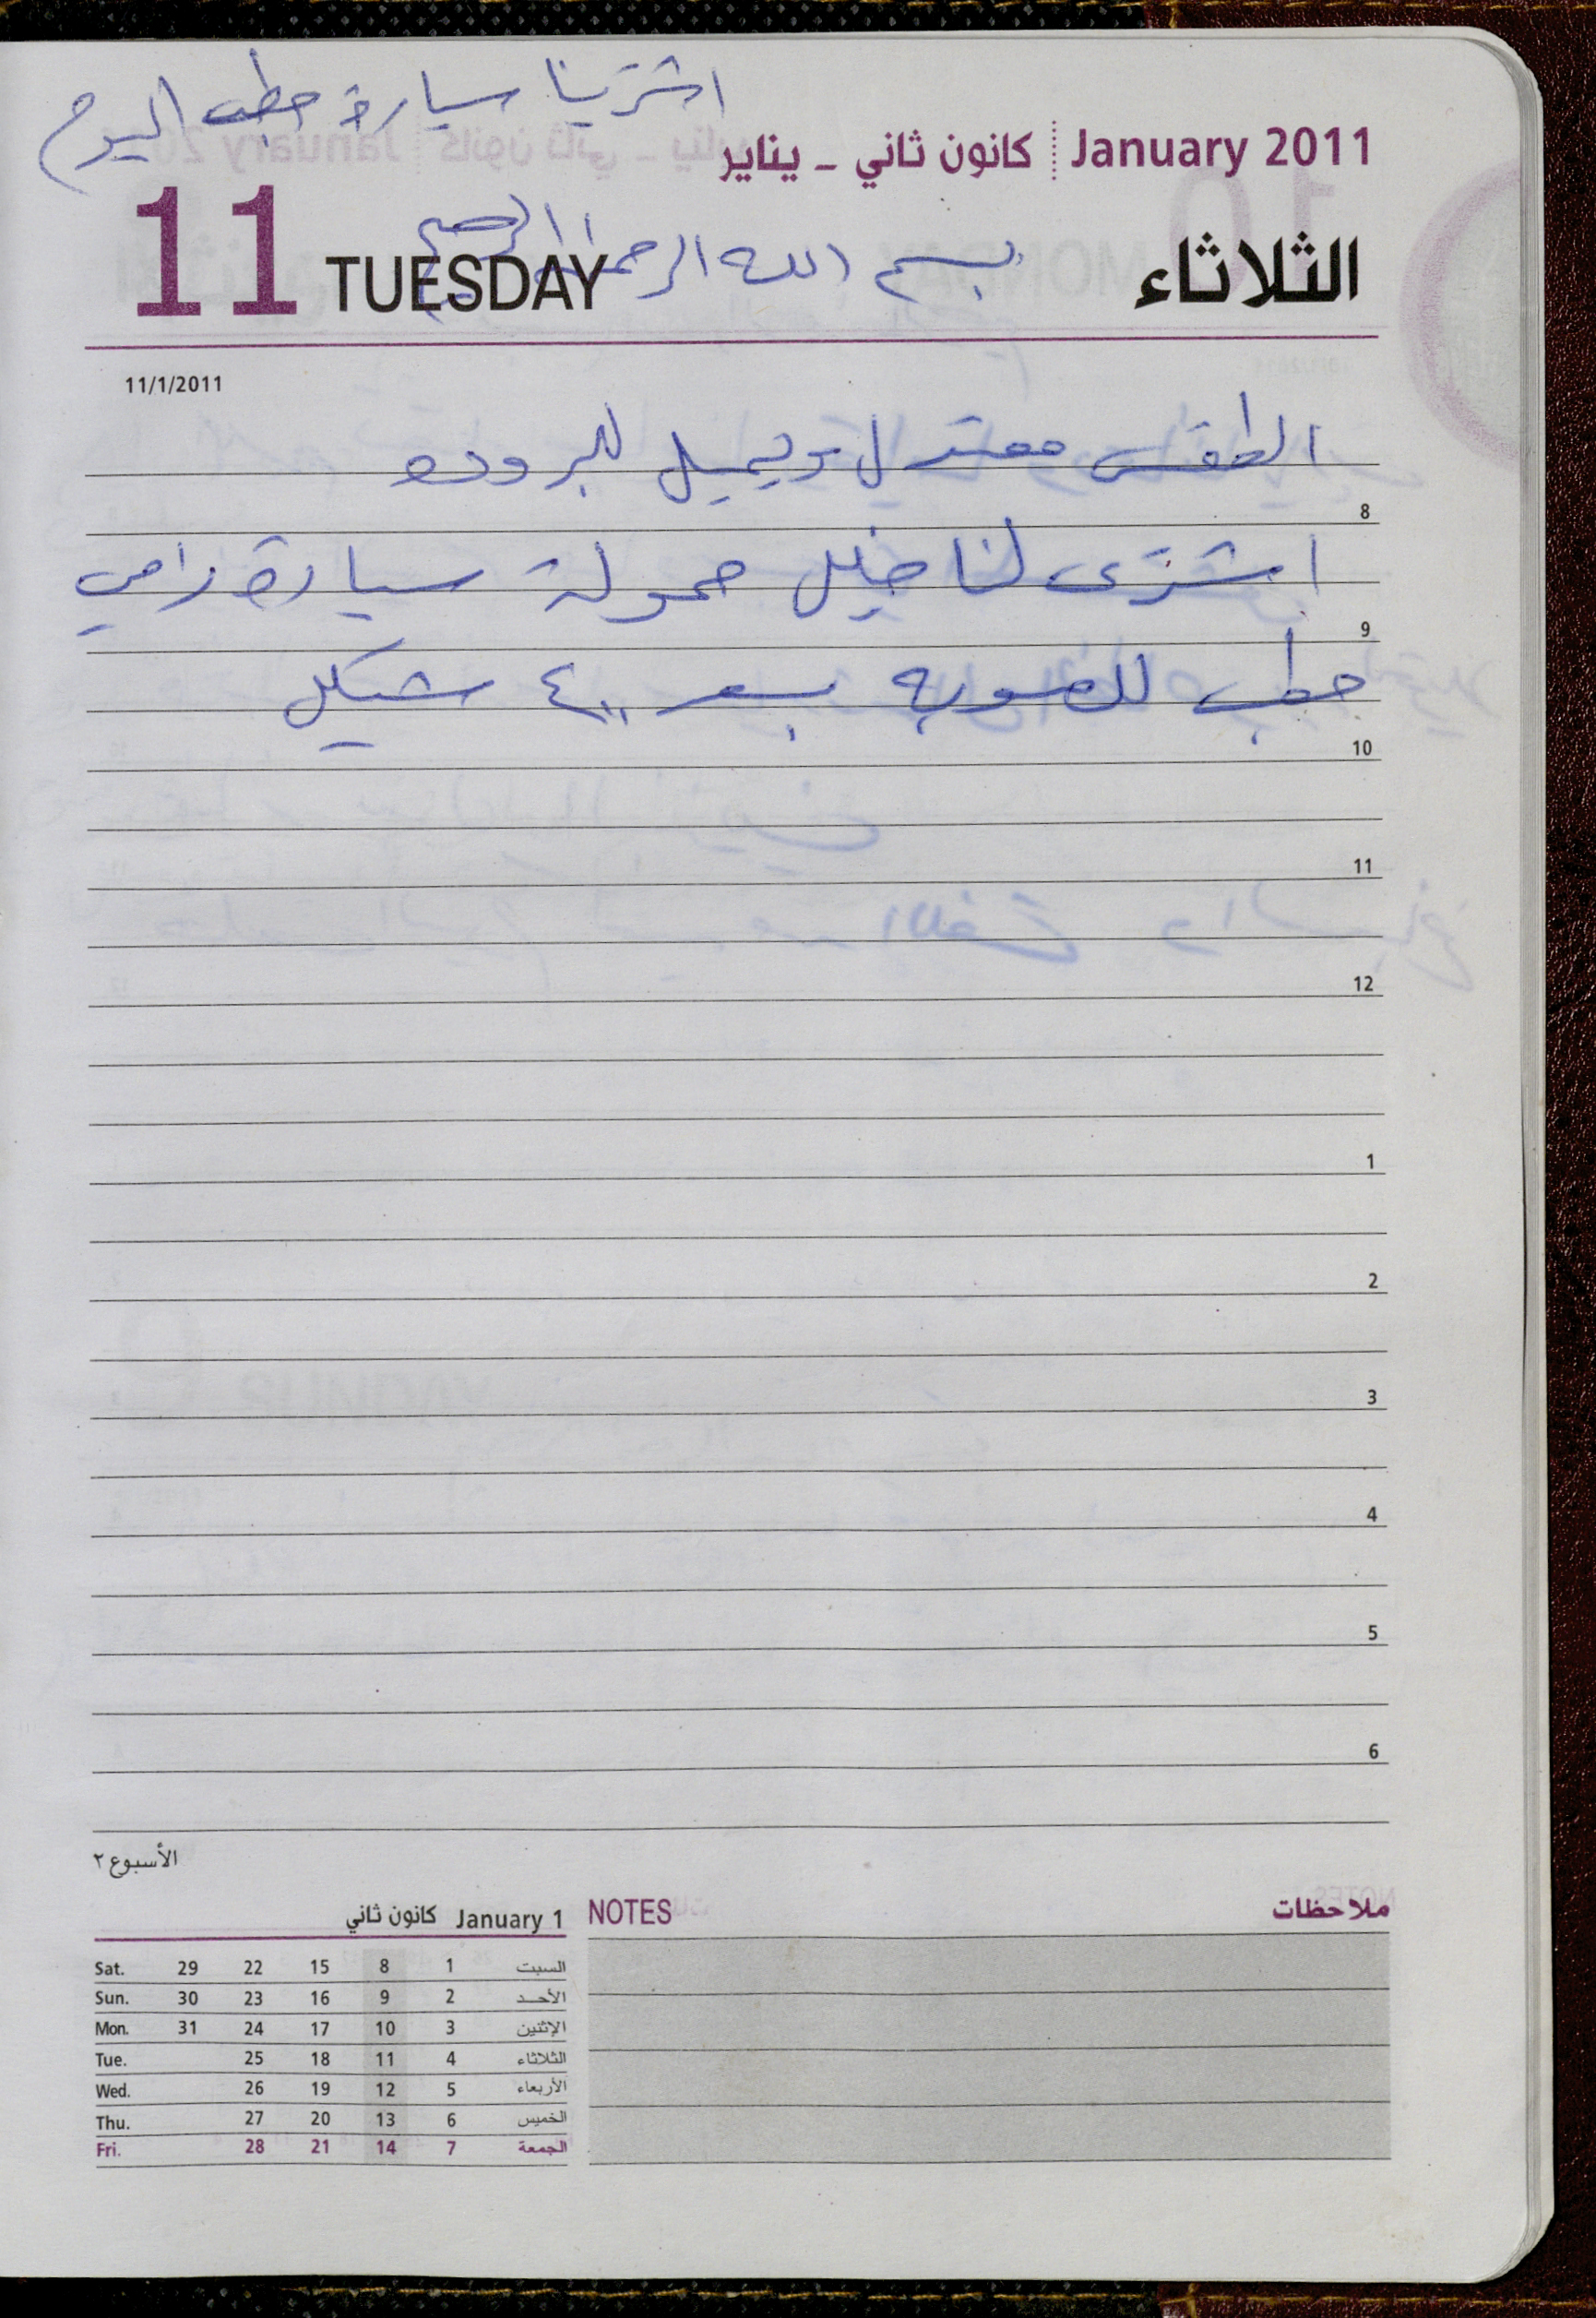 اشترينا سيارة حطب اليوم
January 2011 كانون ثاني - يناير
11 TUESDAY الثلاثاء
بسم الله الرحمن الرحيم
11/1/2011
الطقس معتدل ويميل للبروده
8
اشترى لنا خليل حمولة سيارة رامي
9
حطب للصوبه بسعر ٤٠٠ شيكل
10
11
12
1
2
3
4
5
6
الأسبوع ٢
January 1 كانون ثاني
Sat. 29 22 15 8 1 السبت
Sun. 30 23 16 9 2 الأحد
Mon. 31 24 17 10 3 الإثنين
Tue. 25 18 11 4 الثلاثاء
Wed. 26 19 12 5 الأربعاء
Thu. 27 20 13 6 الخميس
Fri. 28 21 14 7 الجمعة
NOTES ملاحظات